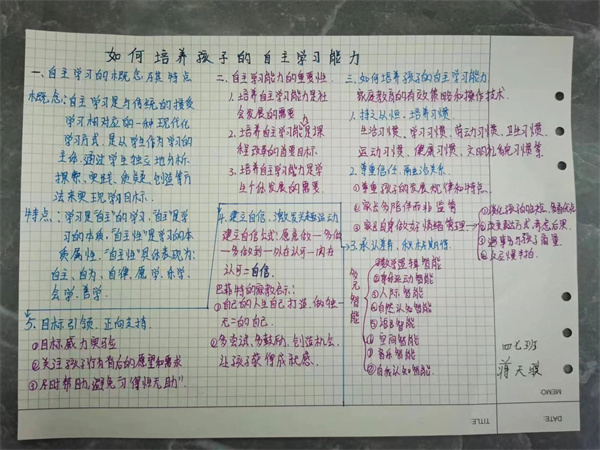 如何培养孩子的自主学习能力
一、自主学习的概念及其特点
概念:自主学习是与传统的接受
学习相对应的一种现代化
学习方式,是从学生作为学习的
主体,通过学生独立地分析、
探索、实践、质疑、创造等方
法来实现学习目标.
特点:学习是"自主"的学习,"自主"是学
习的本质,"自主性"是学习的本
质属性,"自主性"具体表现为:
主自为、自律、愿学、乐学、
会学、善学.
二、自主学习能力的重要性
1. 培养自主学习能力是社
会发展的需要
2. 培养自主学习能力是课
程改革的首要目标
3. 培养自主学习能力是学
生个体发展的需要.
三、如何培养孩子的自主学习能力
家庭教育的有效策略和操作技术.
1. 持之以恒、培养习惯
生活习惯、学习习惯、劳动习惯、卫生习惯
运动习惯、健康习惯、文明礼貌习惯等.
2. 尊重信任、
①尊重孩子的发展规律和特点
②家长多陪伴而非监管
③家长自身做好情绪管理
①
②改变表达方式,考虑后果
③遇事多与孩子商量
④
3. 承认差异、积极期待.
多元智能
①数学逻辑智能
②身体运动智能
③人际智能
④自然认知智能
⑤语言智能
⑥空间智能
⑦音乐智能
⑧自我认知智能.
4. 建立自信、激发兴趣
建立自信公式:愿意做—多做
—多做到—外在认可—内在
认可=自信.
巴菲特的家教启示:
①自己的人生自己打造,做独一
无二的自己.
②多尝试,多鼓励,创造机会,
让孩子获得成就感.
5. 目标引领、正向支持.
①目标感力实验
②关注孩子行为背后的愿望和需求
③及时帮助,避免习得性无助"
四七班
蒋天
MEMO
TITLE:
DATE: